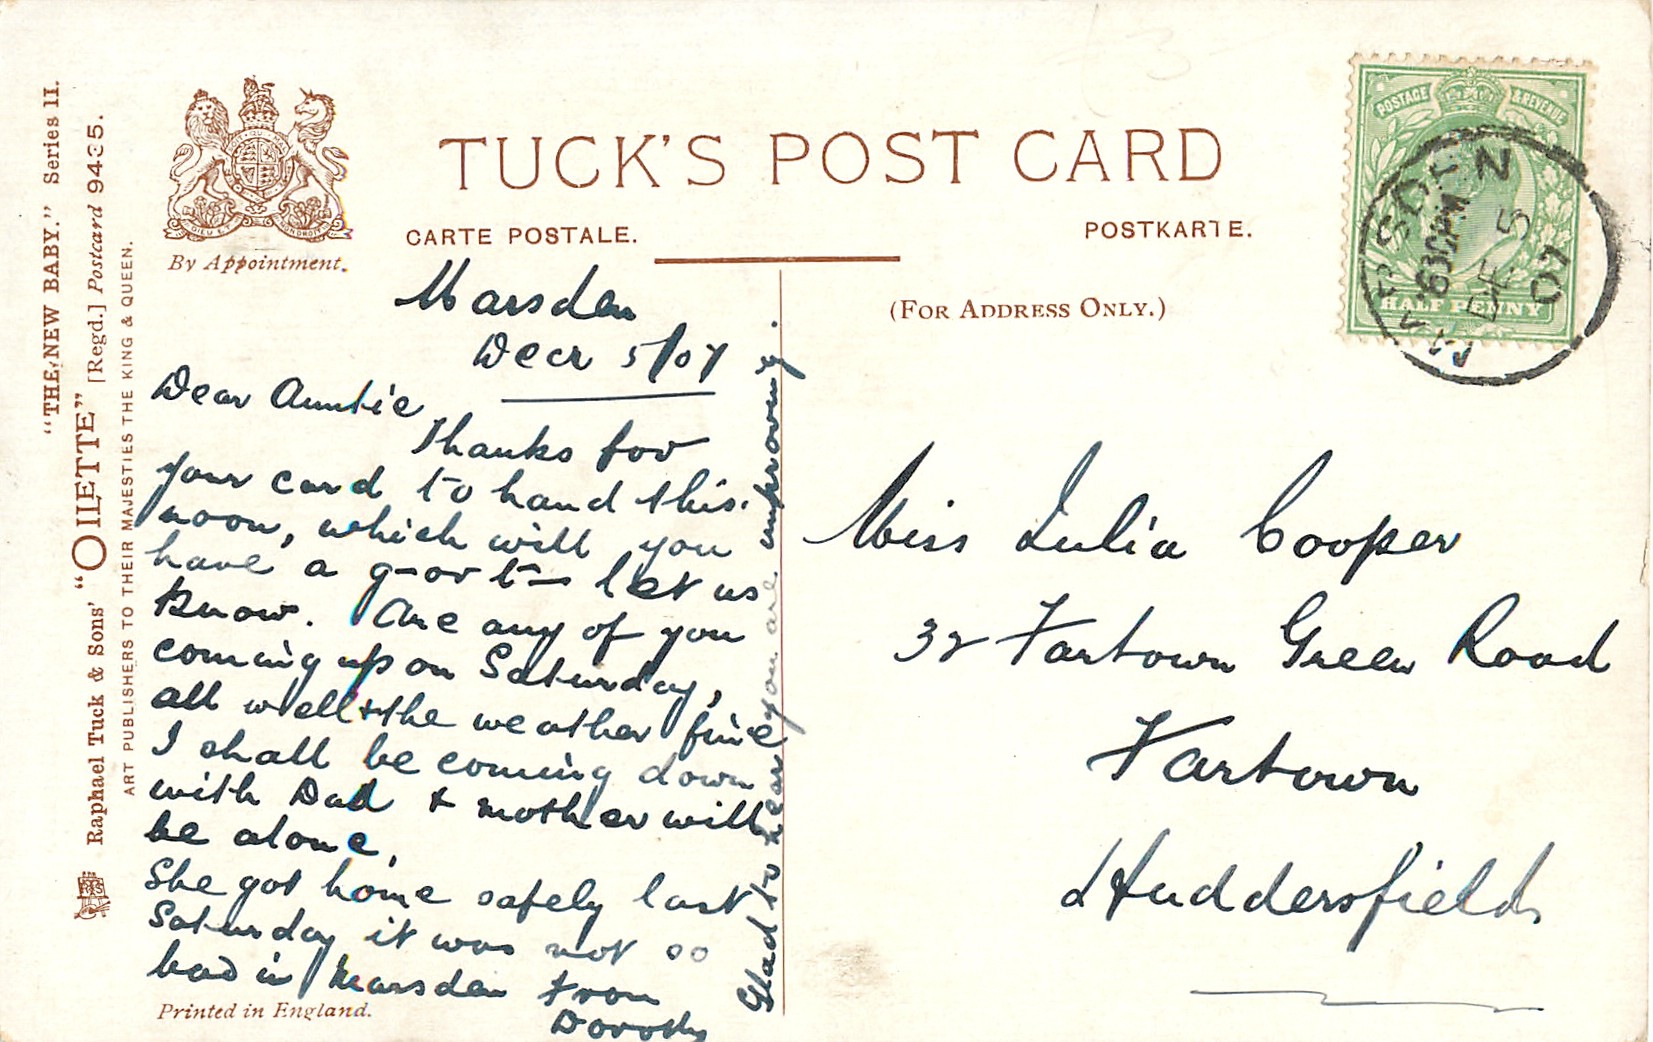 "THE NEW BABY." Series II.
Raphael Tuck & Sons' "OILETTE" [Regd.] Postcard 9435.
ART PUBLISHERS TO THEIR MAJESTIES THE KING & QUEEN.
DIEU ET MON DROIT
By Appointment.
TUCK'S POST CARD
CARTE POSTALE.
POSTKARTE.
(FOR ADDRESS ONLY.)
POSTAGE & REVENUE
HALF PENNY
MARSDEN
DE 5
07
Marsden
Decr 5/07
Dear Auntie
Thanks for
your card to hand this
noon, which will you
have a let us
know. Are any of you
coming up on Saturday,
all well & the weather fine
I shall be coming down
with Dad & mother will
be alone,
She got home safely last
Saturday it was not so
bad in Marsden From
Dorothy
Glad to hear you are improving.
Miss Julia Cooper
32 Fartown Green Road
Fartown
Huddersfield
Printed in England.